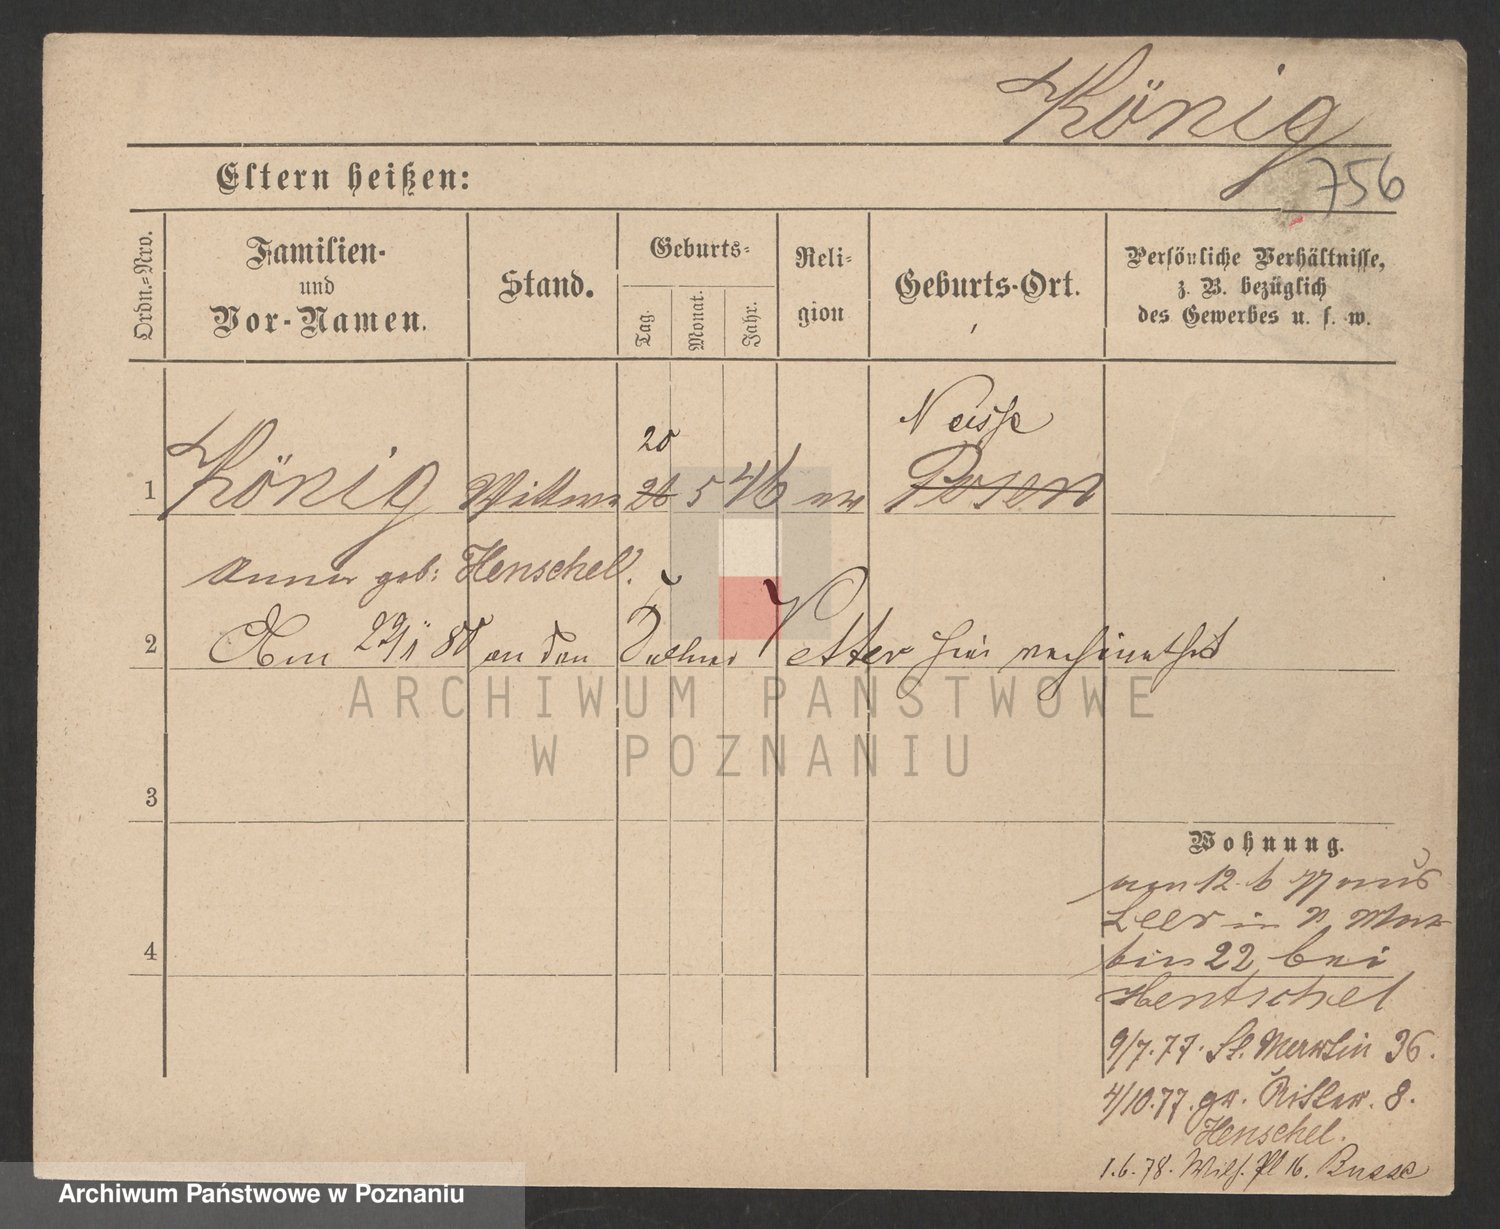 König
756
Eltern heißen:
Ordn.-Nro.
Familien-
und
Vor-Namen.
Stand.
Geburts-
Tag.
Monat.
Jahr.
Reli-
gion
Geburts-Ort.
Persönliche Verhältnisse,
z. B. bezüglich
des Gewerbes u. s. w.
20
Neisse
1 König Wittwe 26 5 46 ev Posen
Anna geb: Henschel.
2 Am 29/1 80 an den Vetter hier verheirathet
ARCHIWUM PAŃSTWOWE
W POZNANIU
3
Wohnung.
von 12. 6 77 aus
Leer in Mar
tin 22 bei
4
Hentschel
9/7. 77. St. Martin 36.
4/10. 77. gr. Ritter. 8.
Henschel.
1. 6. 78. Wilh. Pl 16. Busse
Archiwum Państwowe w Poznaniu